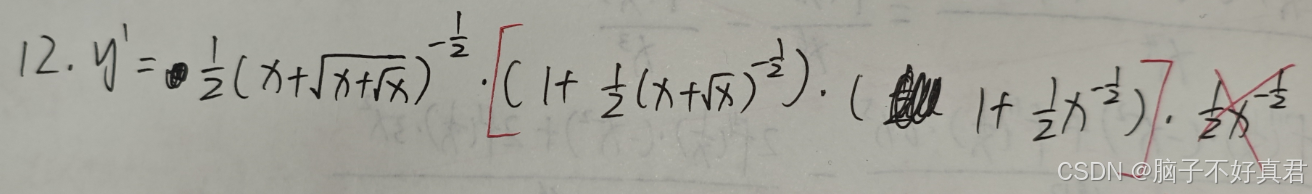 12. y' = 1/2 (x+√(x+√x))^(-1/2) · [(1+ 1/2 (x+√x)^(-1/2)) · (1+ 1/2 x^(-1/2))] · 1/2 x^(-1/2)
CSDN @脑子不好真君